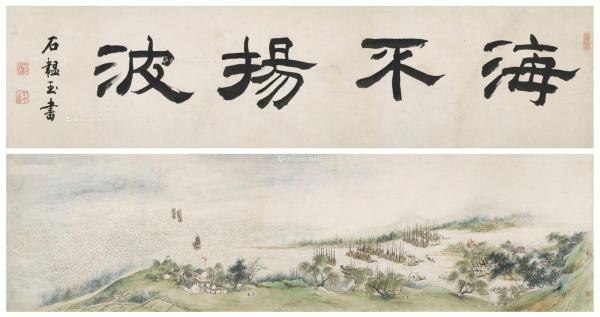 海不揚波
石韞玉書